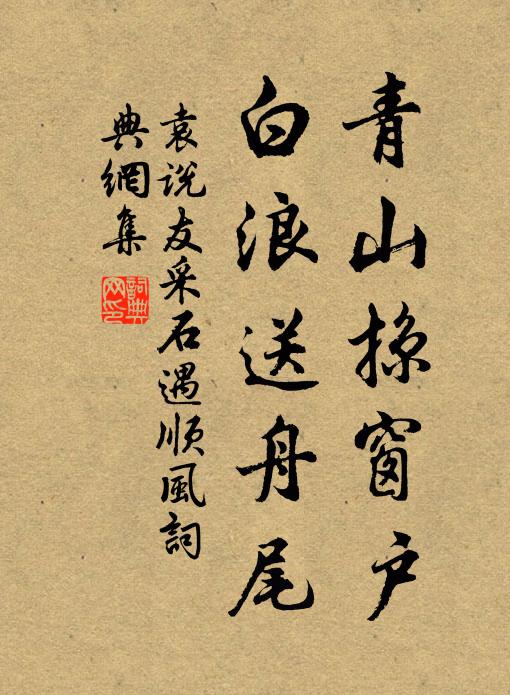 青山掠窗户
白浪送舟尾
袁说友采石遇順風詞
典網集
詞典
网印